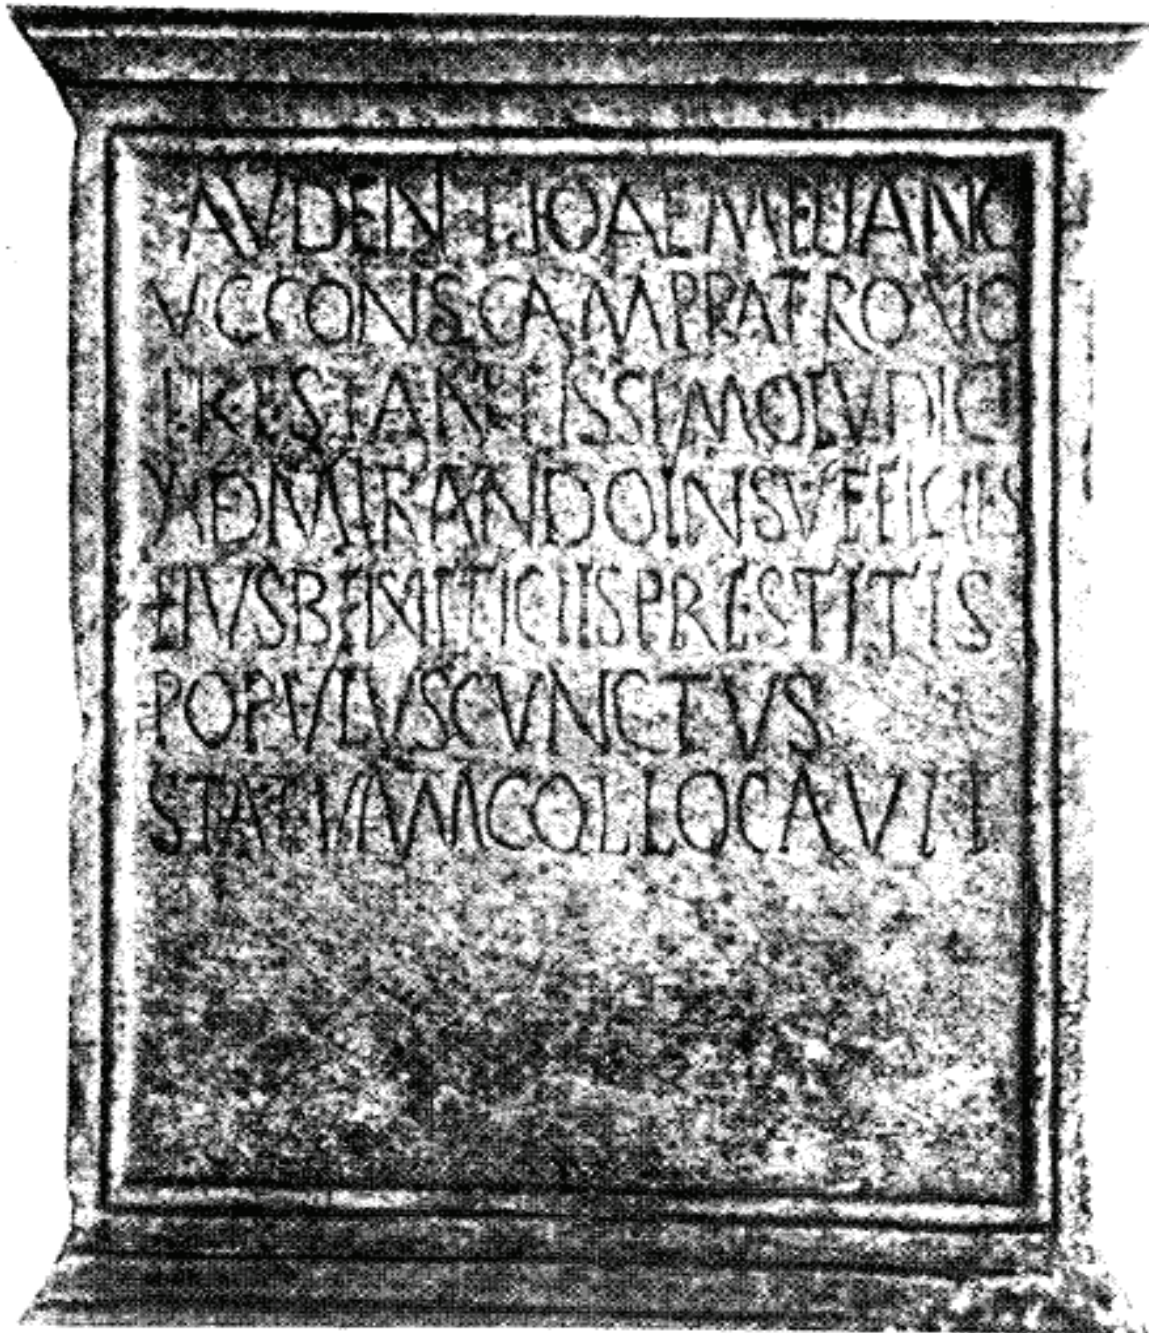 AVDENTIOAEMELIANO
VCCONSCAMPPATRONO
PRESTANTISSIMOEVDICI
ADMIRANDOINSVFFICIIS
EIVSBENIFICIISPRESTITIS
POPVLVSCVNCTVS
STATVAMCOLLOCAVIT